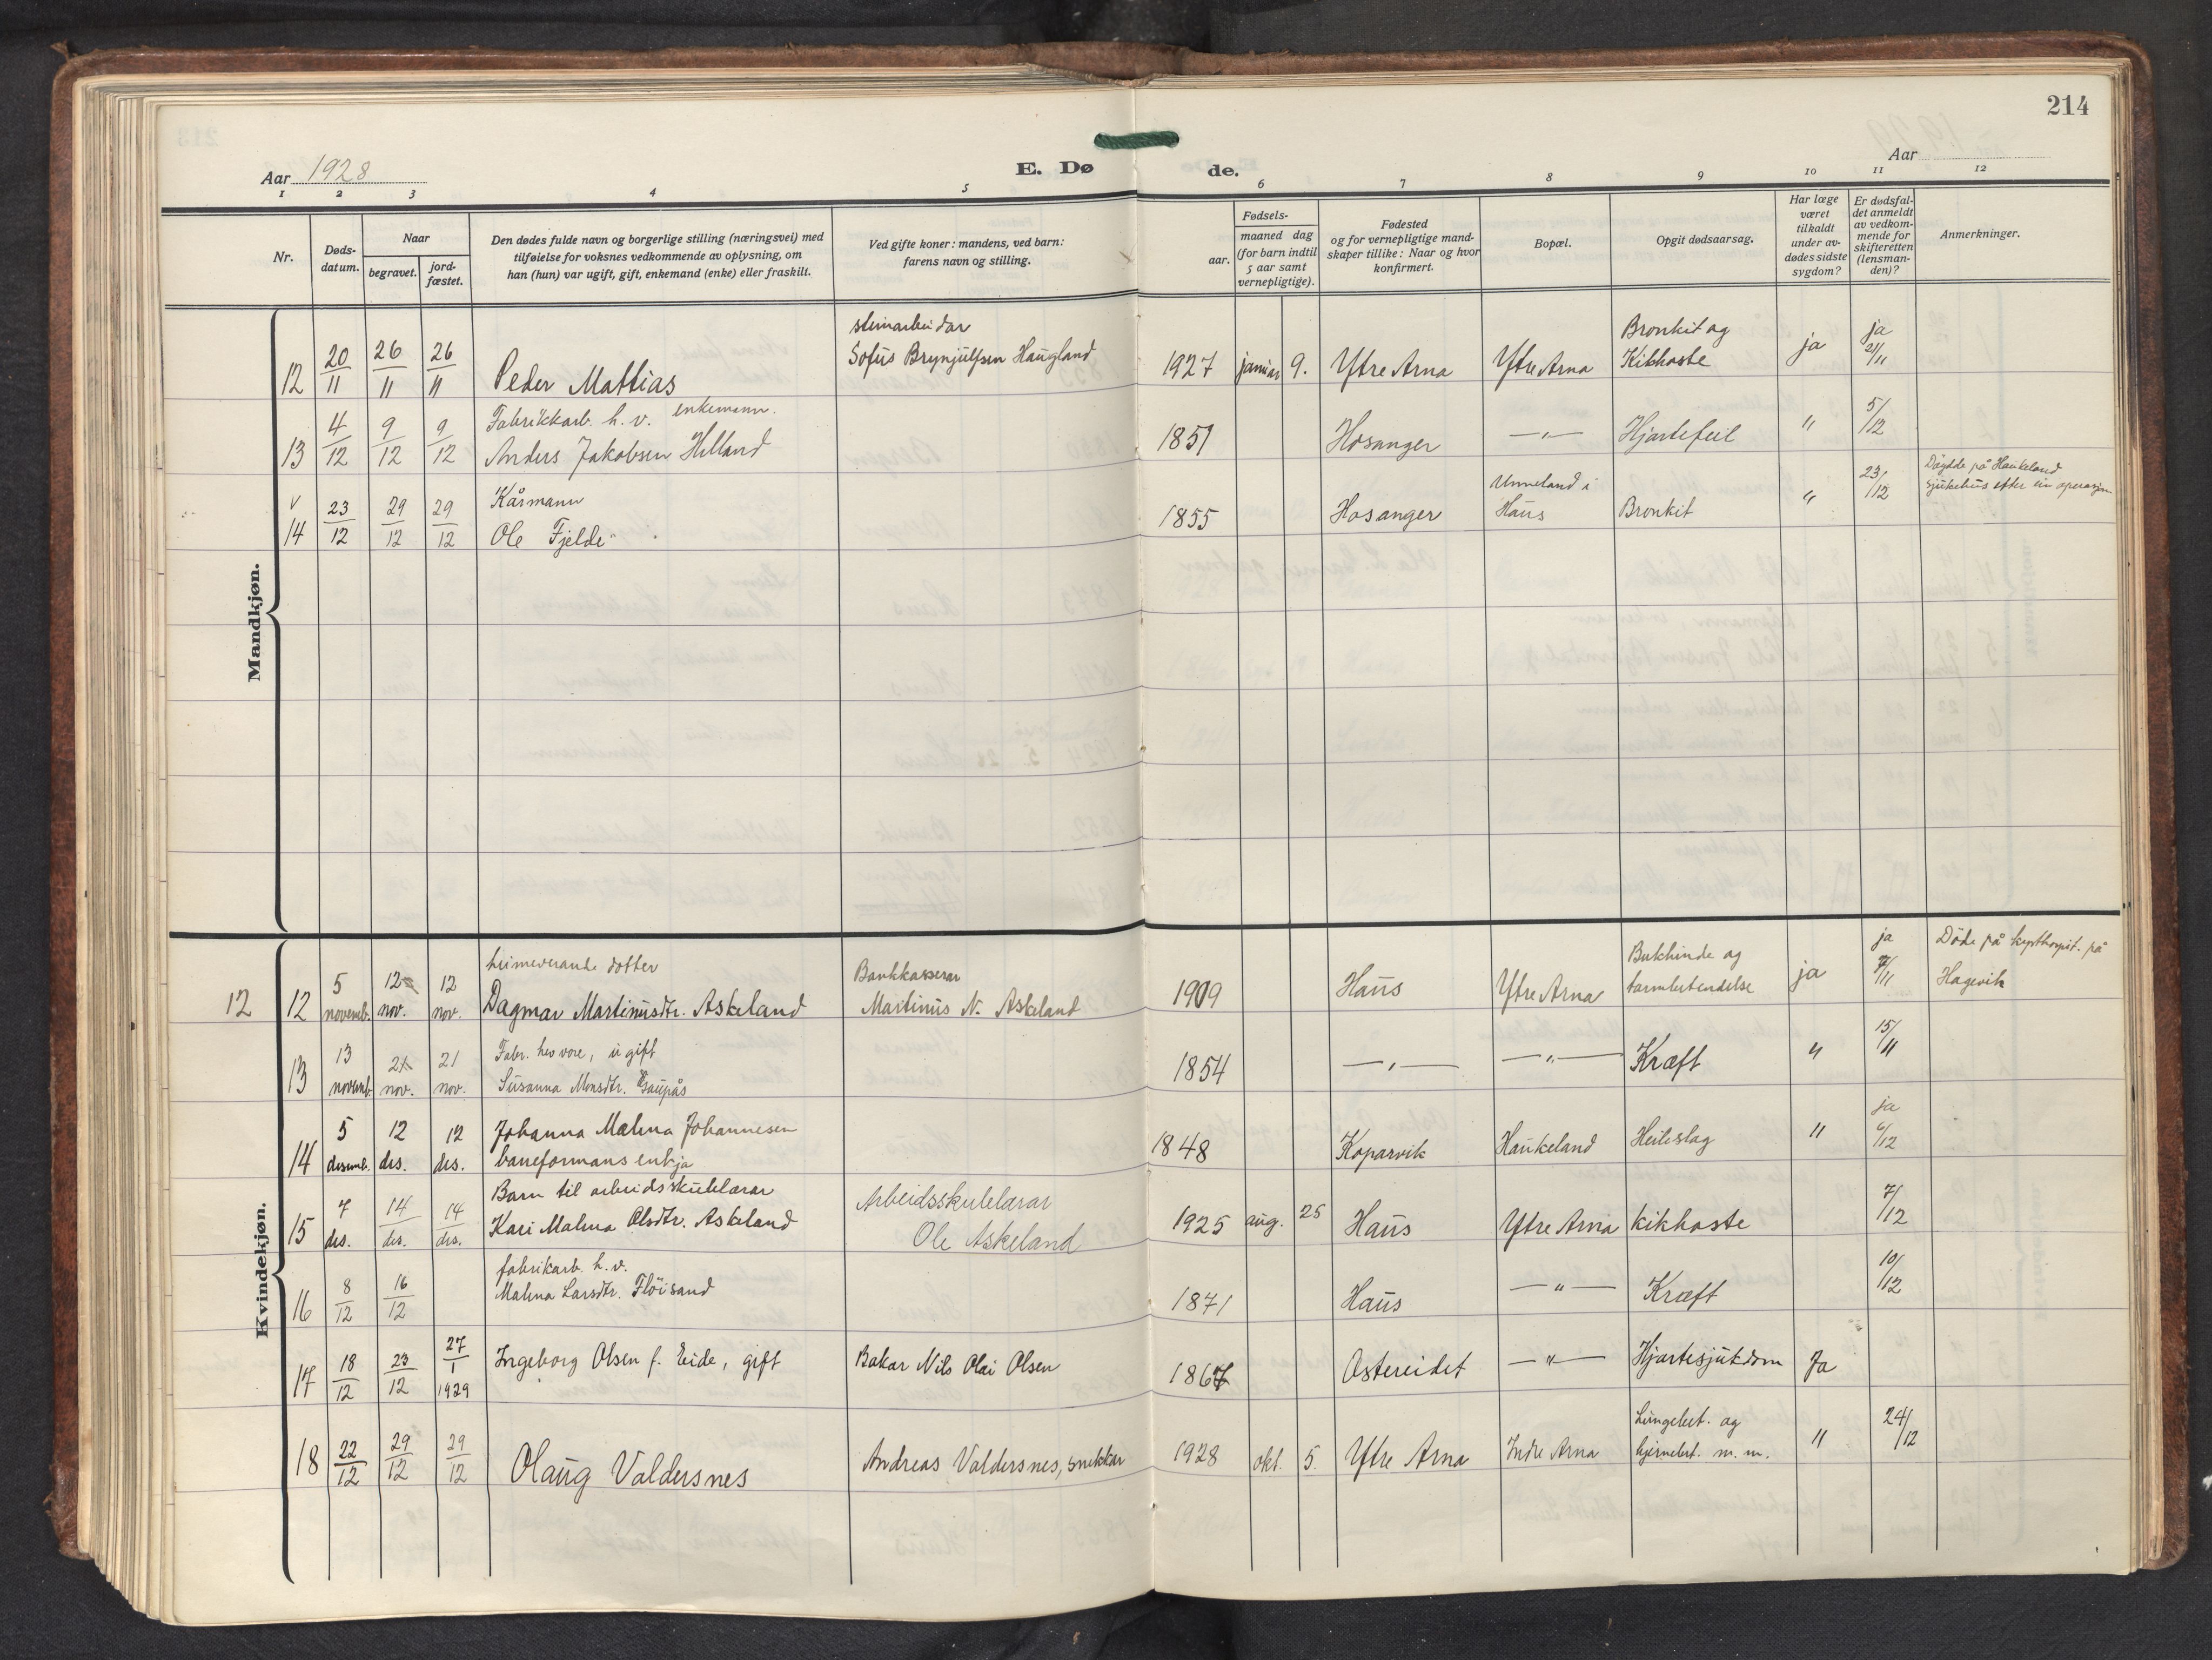 214
Aar 1928
E. Dø
de.
Aar
1 2 3 4 5 6 7 8 9 10 11 12
Nr.
Døds-
datum.
Naar
begravet.
jord-
fæstet.
Den dødes fulde navn og borgerlige stilling (næringsvei) med
tilføielse for voksnes vedkommende av oplysning, om
han (hun) var ugift, gift, enkemand (enke) eller fraskilt.
Ved gifte koner: mandens, ved barn:
farens navn og stilling.
Fødsels-
aar.
maaned dag
(for barn indtil
5 aar samt
vernepligtige).
Fødested
og for vernepligtige mand-
skaper tillike: Naar og hvor
konfirmert.
Bopæl.
Opgit dødsaarsag.
Har læge
været
tilkaldt
under av-
dødes sidste
sygdom?
Er dødsfal-
det anmeldt
av vedkom-
mende for
skifteretten
(lensman-
den)?
Anmerkninger.
Mandkjøn.
steinarbeidar Bronkit og ja
12 20/11 26/11 26/11 Peder Mattias Sofus Brynjulfsen Haugland 1927 januar 9. Ytre Arna Ytre Arna Kikhoste ja 21/11
Fabrikkarb. h. v. enkemann.
13 4/12 9/12 9/12 Anders Jakobsen Helland 1851 Hosanger —"— Hjartefeil " 5/12
Kårmann Unneland i Døydde på Haukeland
v 14 23/12 29/12 29/12 Ole Fjelde 1855 Hosanger Haus Bronkit " 23/12 sjukehus efter ein operasjon
Kvindekjøn.
heimeverande dotter Bankkasserar Bukhinde og ja Døde på kysthospit. på
12 12 5 novemb. 12 nov. 12 nov. Dagmar Martinusdtr. Askeland Martinus N. Askeland 1909 Haus Ytre Arna tarmbetendelse ja 7/11 Hagevik
Fabr. h v, ugift
13 13 novemb. 21 nov. 21 nov. Susanna Monsdtr. Gaupås 1854 —"— —"— Kræft " 15/11
Johanna Malena Johannesen ja
14 5 desemb. 12 des. 12 des. baneformans enkja 1848 Koparvik Haukeland Heileslag " 6/12
Barn til arbeidsskulelærar Arbeidsskulelærar
15 7 des. 14 des. 14 des. Kari Malena Olsdtr. Askeland Ole Askeland 1925 aug. 25 Haus Ytre Arna kikhoste 7/12
fabrikarb. h. v.
16 8/12 16/12 Malena Larsdtr. Fløisand 1871 Haus —"— Kræft 10/12
17 18/12 23/12 27/1 1929 Ingeborg Olsen f. Eide, gift Bakar Nils Olai Olsen 1867 Ostereidet —"— Hjartesjukdom Ja
Lungebet. og
18 22/12 29/12 29/12 Olaug Valdersnes Andreas Valdersnes, snekkar 1928 okt. 5. Ytre Arna Indre Arna hjernebet. m. m. " 24/12